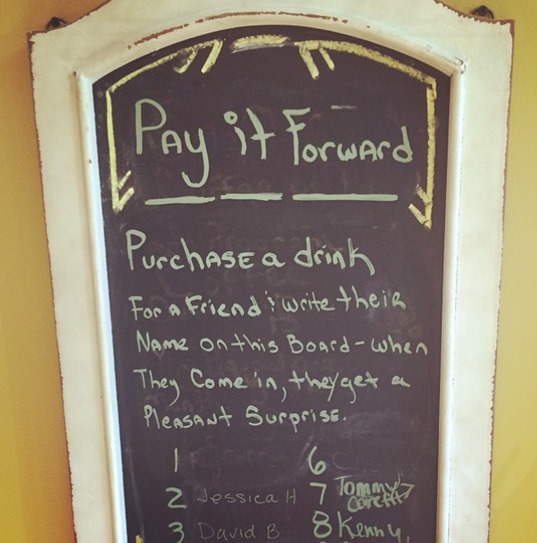 Pay it Forward
Purchase a drink
For a Friend & write their
Name on this Board - when
They Come in, they get a
Pleasant Surprise.
1
2 Jessica H
3 David B
6
7 Tommy
8 Kenny,